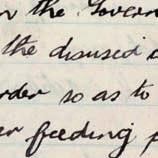 the Govern
the disused
order so as to
feeding